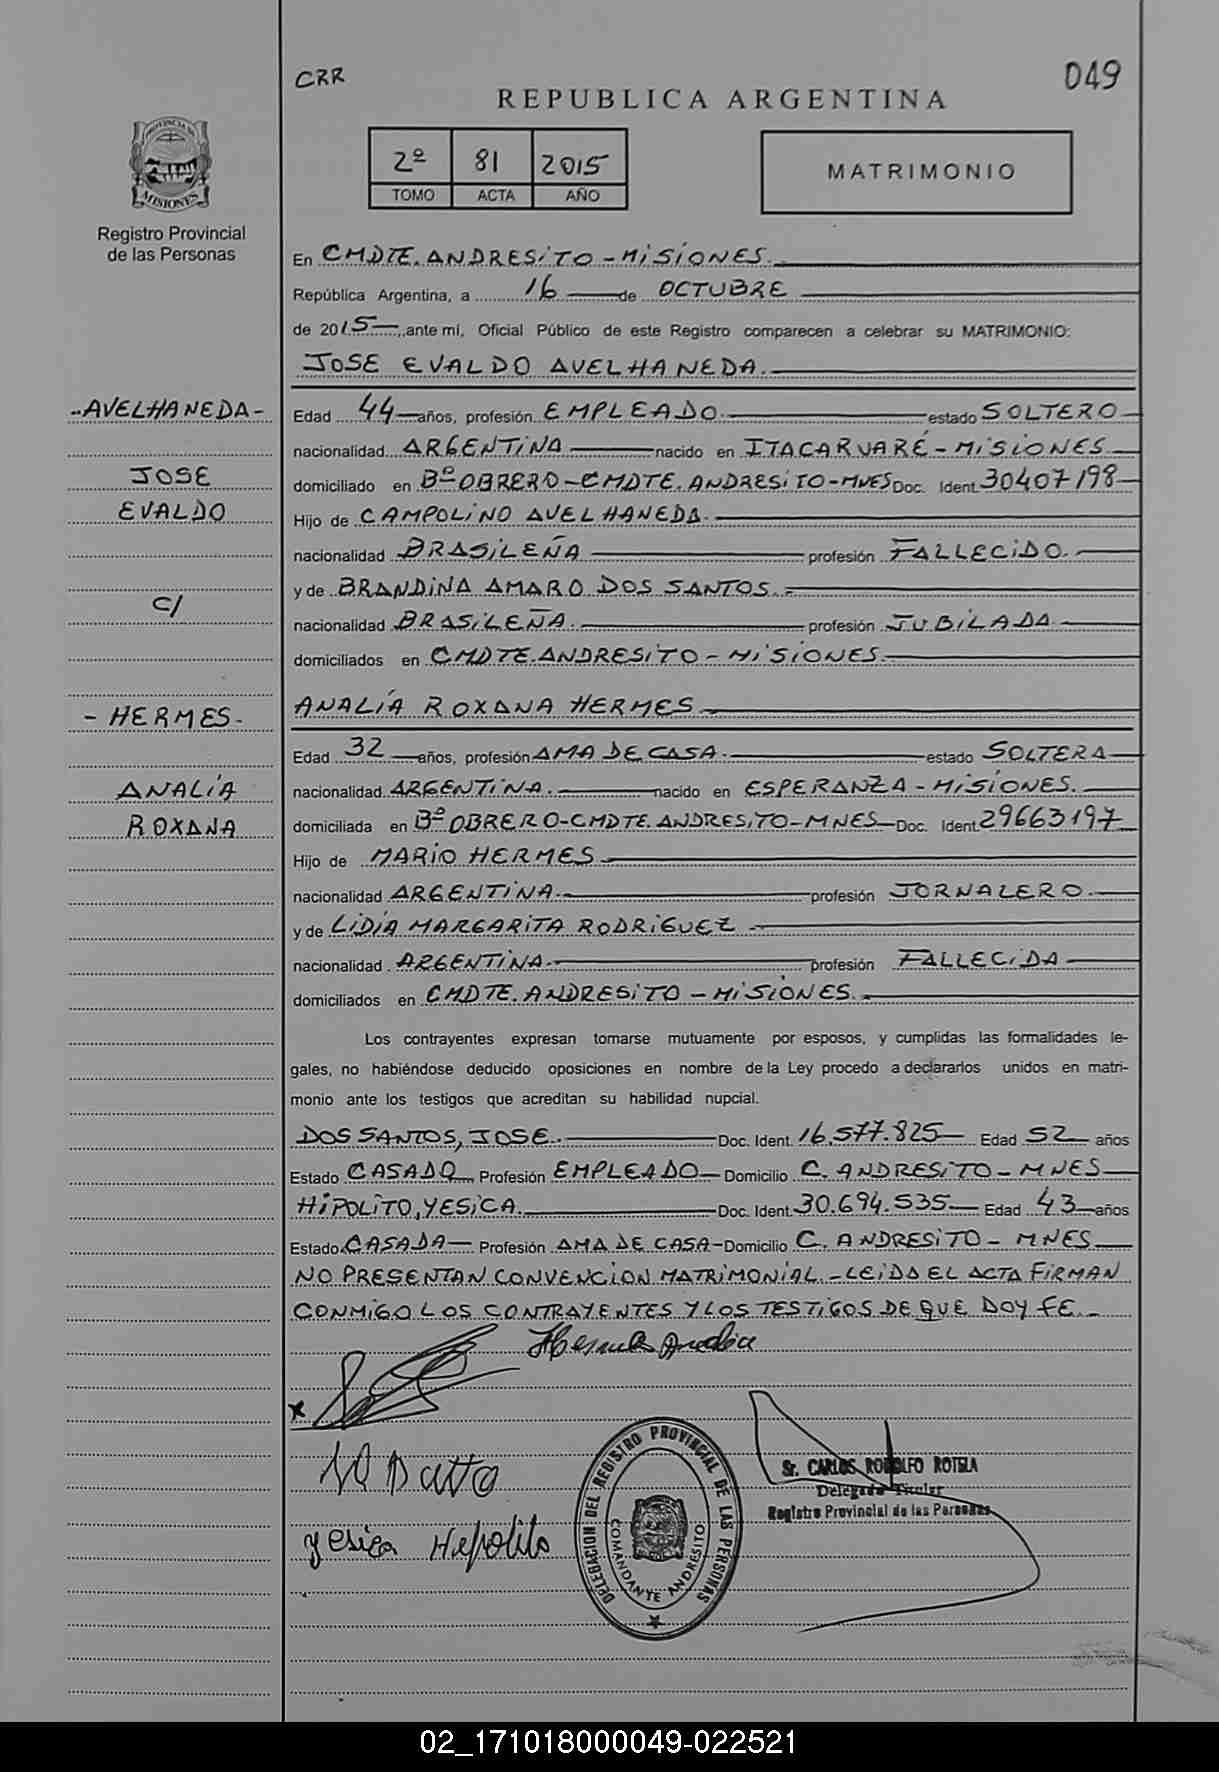 CRR
049
REPUBLICA ARGENTINA
2º 81 2015
TOMO ACTA AÑO
MATRIMONIO
PROVINCIA DE
MISIONES
Registro Provincial
de las Personas
En CMDTE. ANDRESITO - MISIONES.
República Argentina, a 16 de OCTUBRE
de 2015, ante mí, Oficial Público de este Registro comparecen a celebrar su MATRIMONIO:
JOSE EVALDO AVELHANEDA.
-AVELHANEDA-
JOSE
EVALDO
C/
- HERMES -
ANALÍA
ROXANA
Edad 44 años, profesión EMPLEADO. estado SOLTERO
nacionalidad ARGENTINA nacido en ITACARUARÉ - MISIONES
domiciliado en Bº OBRERO - CMDTE. ANDRESITO - MNES Doc. Ident. 30407198
Hijo de CAMPOLINO AVELHANEDA.
nacionalidad BRASILEÑA profesión FALLECIDO.
y de BRANDINA AMARO DOS SANTOS.
nacionalidad BRASILEÑA. profesión JUBILADA
domiciliados en CMDTE. ANDRESITO - MISIONES.
ANALÍA ROXANA HERMES
Edad 32 años, profesión AMA DE CASA. estado SOLTERA
nacionalidad ARGENTINA. nacido en ESPERANZA - MISIONES.
domiciliada en Bº OBRERO-CMDTE. ANDRESITO-MNES Doc. Ident. 29663197
Hijo de MARIO HERMES
nacionalidad ARGENTINA. profesión JORNALERO.
y de LIDIA MARGARITA RODRIGUEZ
nacionalidad ARGENTINA. profesión FALLECIDA
domiciliados en CMDTE. ANDRESITO - MISIONES.
Los contrayentes expresan tomarse mutuamente por esposos, y cumplidas las formalidades le-
gales, no habiéndose deducido oposiciones en nombre de la Ley procedo a declararlos unidos en matri-
monio ante los testigos que acreditan su habilidad nupcial.
DOS SANTOS, JOSE. Doc. Ident. 16.577.825 Edad 52 años
Estado CASADO Profesión EMPLEADO Domicilio C. ANDRESITO - MNES
HIPOLITO, YESICA. Doc. Ident. 30.694.535 Edad 43 años
Estado CASADA Profesión AMA DE CASA Domicilio C. ANDRESITO - MNES
NO PRESENTAN CONVENCION MATRIMONIAL. - LEIDA EL ACTA FIRMAN
CONMIGO LOS CONTRAYENTES Y LOS TESTIGOS DE QUE DOY FE.
x
Yesica Hipolito
DELEGACION DEL REGISTRO PROVINCIAL DE LAS PERSONAS
COMANDANTE ANDRESITO
Sr. CARLOS RODOLFO ROTELA
Delegado Titular
Registro Provincial de las Personas
02_171018000049-022521